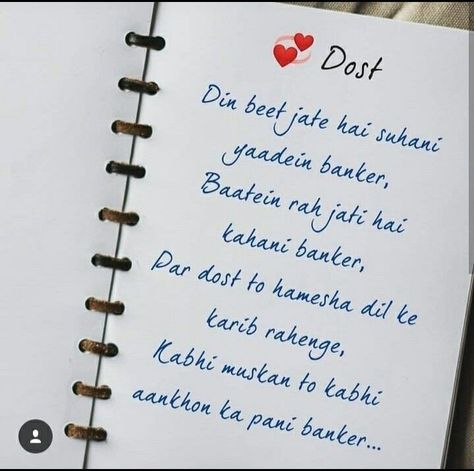 Dost
Din beet jate hai suhani
yaadein banker,
Baatein rah jati hai
kahani banker,
Par dost to hamesha dil ke
karib rahenge,
Kabhi muskan to kabhi
aankhon ka pani banker...